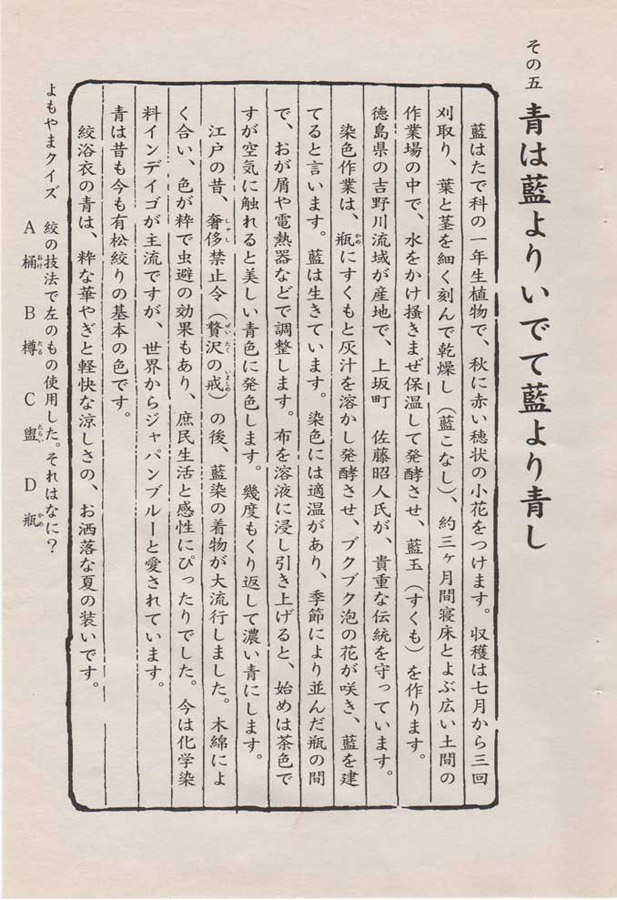 その五 青は藍よりいでて藍より青し
藍はたで科の一年生植物で、秋に赤い穂状の小花をつけます。収穫は七月から三回
刈取り、葉と茎を細く刻んで乾燥し（藍こなし）、約三ヶ月間寝床とよぶ広い土間の
作業場の中で、水をかけ掻きまぜ保温して発酵させ、藍玉（すくも）を作ります。
徳島県の吉野川流域が産地で、上坂町 佐藤昭人氏が、貴重な伝統を守っています。
染色作業は、瓶にすくもと灰汁を溶かし発酵させ、ブクブク泡の花が咲き、藍を建
てると言います。藍は生きています。染色には適温があり、季節により並んだ瓶の間
で、おが屑や電熱器などで調整します。布を溶液に浸し引き上げると、始めは茶色で
すが空気に触れると美しい青色に発色します。幾度もくり返して濃い青にします。
江戸の昔、奢侈禁止令（贅沢の戒）の後、藍染の着物が大流行しました。木綿によ
く合い、色が粋で虫避の効果もあり、庶民生活と感性にぴったりでした。今は化学染
料インデイゴが主流ですが、世界からジャパンブルーと愛されています。
青は昔も今も有松絞りの基本の色です。
絞浴衣の青は、粋な華やぎと軽快な涼しさの、お洒落な夏の装いです。
よもやまクイズ 絞の技法で左のもの使用した。それはなに？
A 桶 B 樽 C 盥 D 瓶